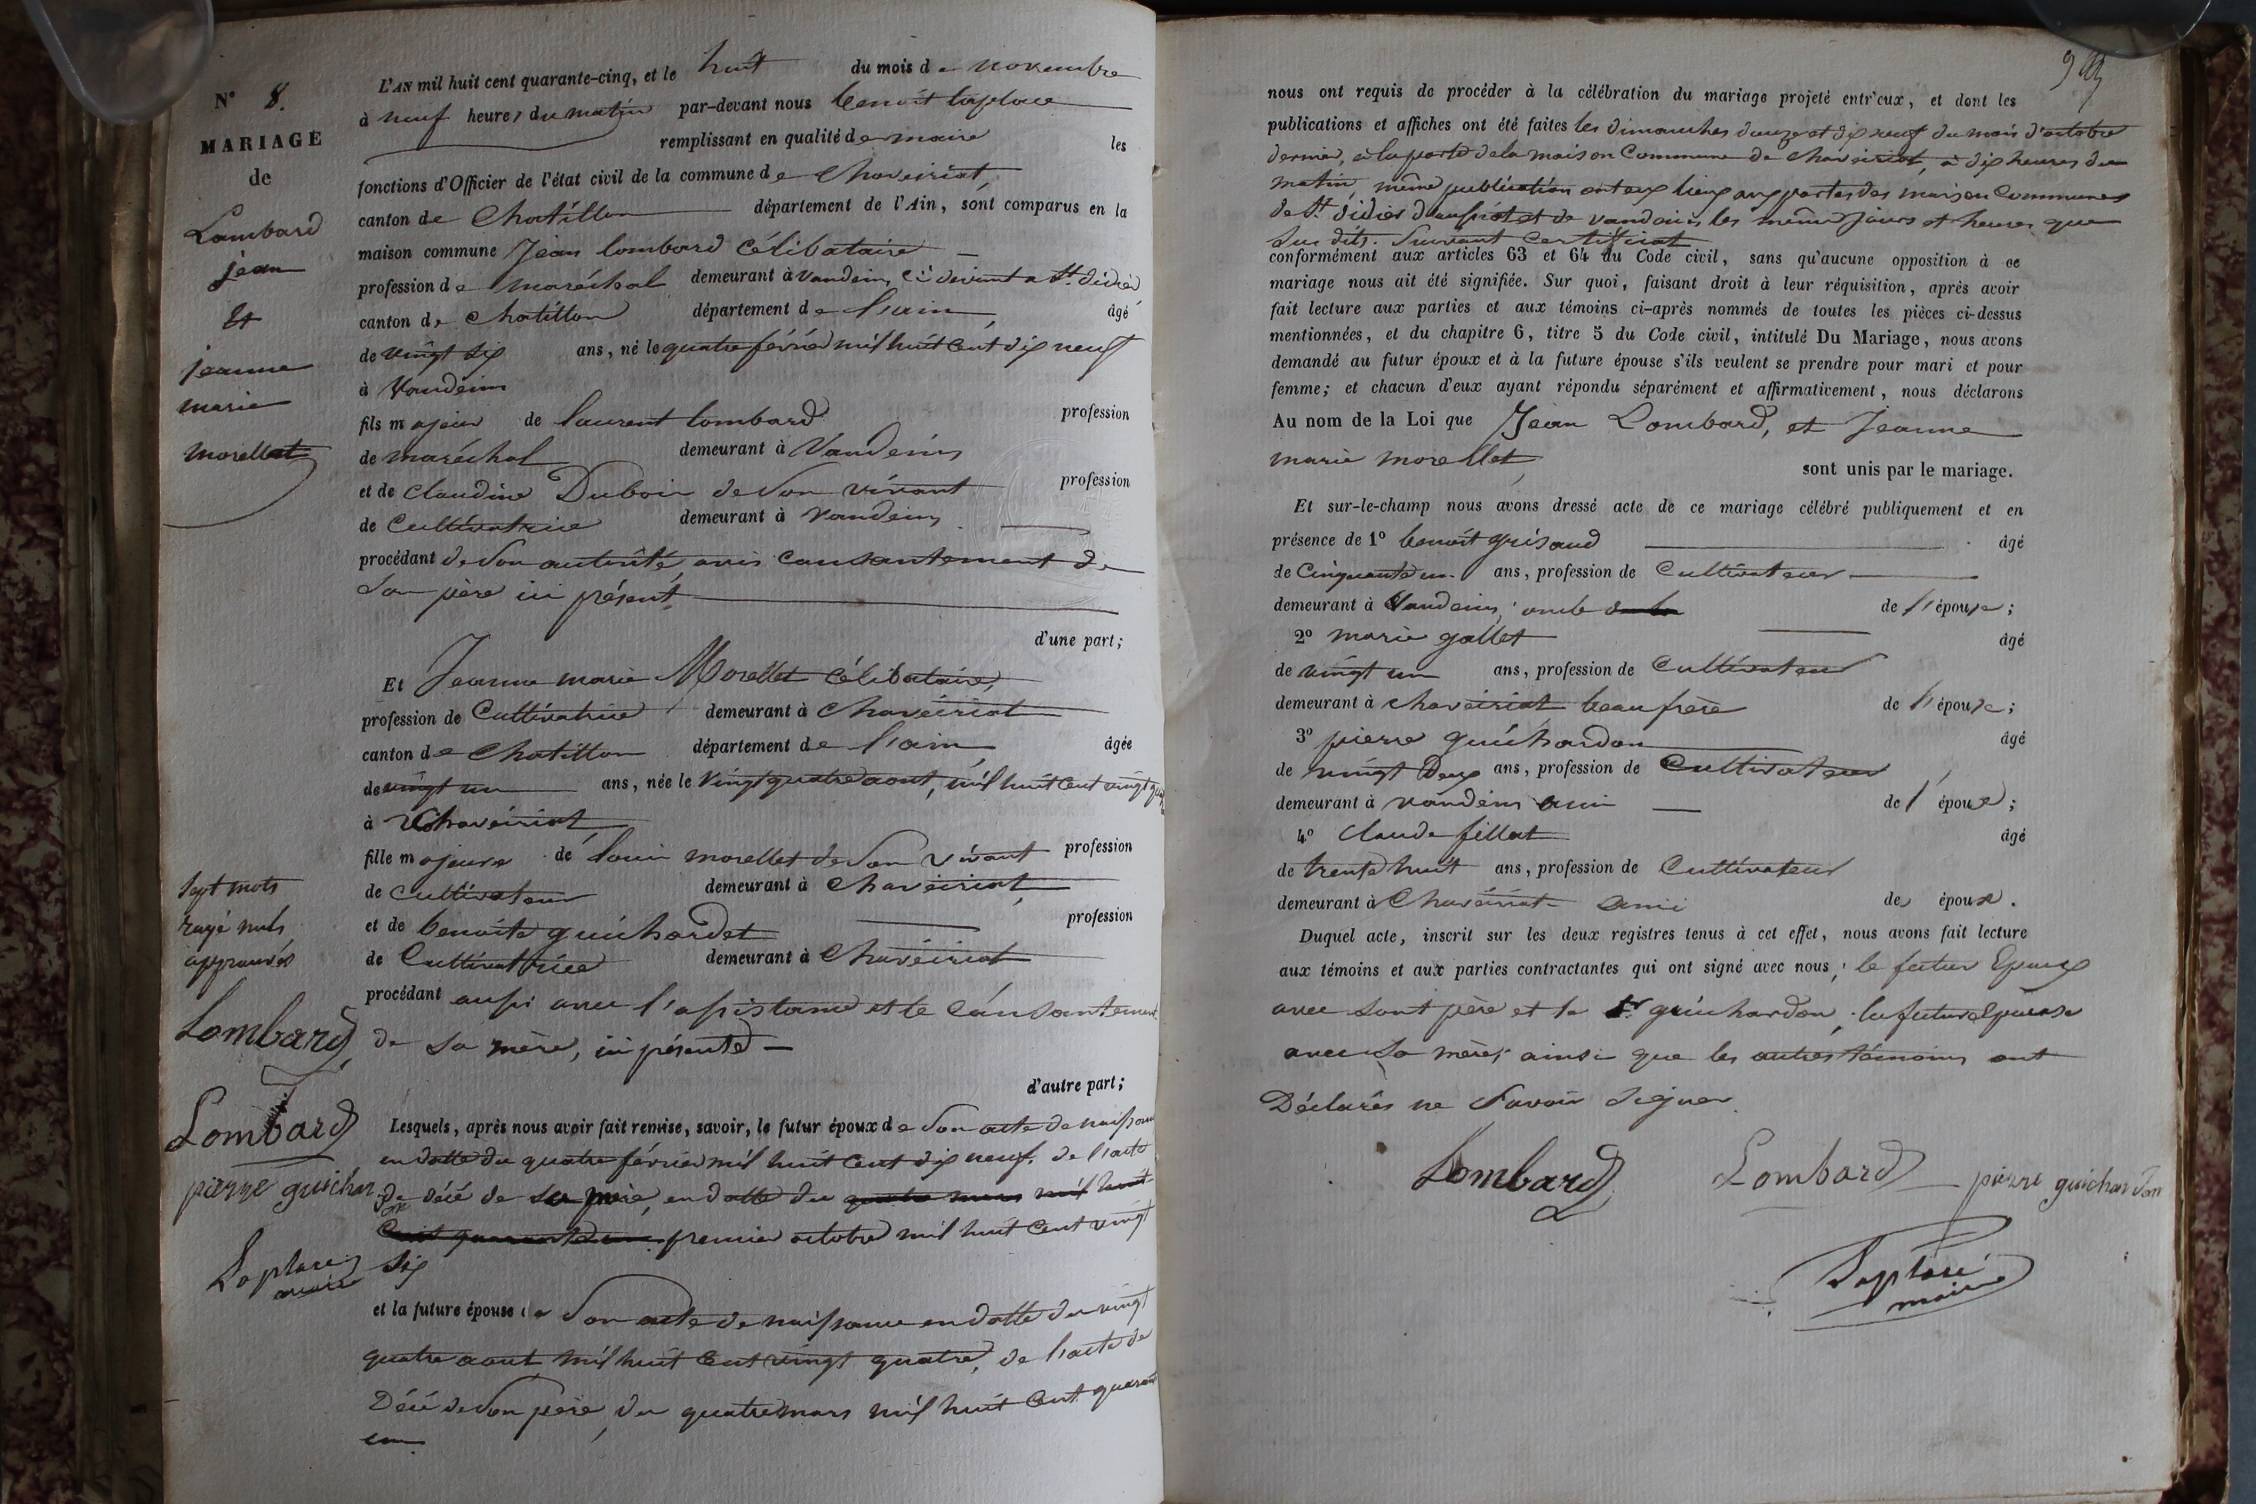 N° 8.
MARIAGE
de
Lombard
jean
Et
jeanne
marie
morellet
L'AN mil huit cent quarante-cinq, et le huit du mois de novembre
à neuf heures du matin par-devant nous benoit laplace
remplissant en qualité de maire les
fonctions d'Officier de l'état civil de la commune de Chaveiriat,
canton de Chatillon département de l'Ain, sont comparus en la
maison commune Jean lombard Célibataire
profession de maréchal demeurant à vandeins, ci devant a St. didier
canton de Chatillon département de l'ain, âgé
de vingt six ans, né le quatre février mil huit Cent dix neuf
à Vandeins
fils majeur de laurent lombard profession
de maréchal demeurant à Vandeins
et de claudine Dubois de son vivant profession
de Cultivatrice demeurant à Vandeins
procédant de son autorité, avis consantement de
son père ici présent,
d'une part;
Et Jeanne marie Morellet Célibataire,
profession de Cultivatrice demeurant à Chaveiriat
canton de Chatillon département de l'ain, âgée
de vingt un ans, née le vingt quatre aout, mil huit Cent vingt
à Chaveiriat
fille majeure de louis morellet de son vivant profession
de Cultivateur demeurant à Chaveiriat,
et de benoite guichardet profession
de Cultivatrice demeurant à Chaveiriat
procédant aussi avec l'assistance et le Consantement
de sa mère, ici présente
d'autre part;
sept mots
rayé nuls
approuvés
Lombard
Lombard
pierre guichar
Laplace
maire
Lesquels, après nous avoir fait remise, savoir, le futur époux de son acte de naissance
en datte du quatre février mil huit Cent dix neuf, de l'acte
de décé de sa mère, en datte du quatre mars mil huit
Cent quarante un premier octobre mil huit Cent vingt
six
et la future épouse de son acte de naissance en datte du vingt
quatre aout mil huit Cent vingt quatre, de l'acte de
Décé de son père, du quatre mars mil huit Cent quarante
un.
nous ont requis de procéder à la célébration du mariage projeté entr'eux, et dont les
publications et affiches ont été faites les dimanches douze et dix neuf du mois d'octobre
dernier, à la porte de la maison Commune de Chaveiriat, à dix heures du
matin, même publication ont eux lieux aux portes des maison Communes
de St. didier d'aussiat et de vandeins les même jours et heures que
sus dits. Suivant Certificat
conformément aux articles 63 et 64 du Code civil, sans qu'aucune opposition à ce
mariage nous ait été signifiée. Sur quoi, faisant droit à leur réquisition, après avoir
fait lecture aux parties et aux témoins ci-après nommés de toutes les pièces ci-dessus
mentionnées, et du chapitre 6, titre 5 du Code civil, intitulé Du Mariage, nous avons
demandé au futur époux et à la future épouse s'ils veulent se prendre pour mari et pour
femme; et chacun d'eux ayant répondu séparément et affirmativement, nous déclarons
Au nom de la Loi que Jean Lombard, et Jeanne
marie morellet sont unis par le mariage.
Et sur-le-champ nous avons dressé acte de ce mariage célébré publiquement et en
présence de 1° benoit grisaud âgé
de Cinquante un ans, profession de Cultivateur
demeurant à Vandeins, oncle de l'épouse;
2° marie gallet âgé
de vingt un ans, profession de Cultivateur
demeurant à Chaveiriat beaufrère de l'épouse;
3° pierre guichardon âgé
de vingt Deux ans, profession de Cultivateur
demeurant à vandeins ami de l'époux;
4° Claude fillat âgé
de trente huit ans, profession de Cultivateur
demeurant à Chaveiriat ami des époux.
Duquel acte, inscrit sur les deux registres tenus à cet effet, nous avons fait lecture
aux témoins et aux parties contractantes qui ont signé avec nous, le futur Epoux
avec sont père et le Sr guichardon, la future Epouse
avec sa mère, ainsi que les autres témoins ont
Déclarés ne savoir signer.
Lombard Lombard pierre guichardon
Laplace
maire